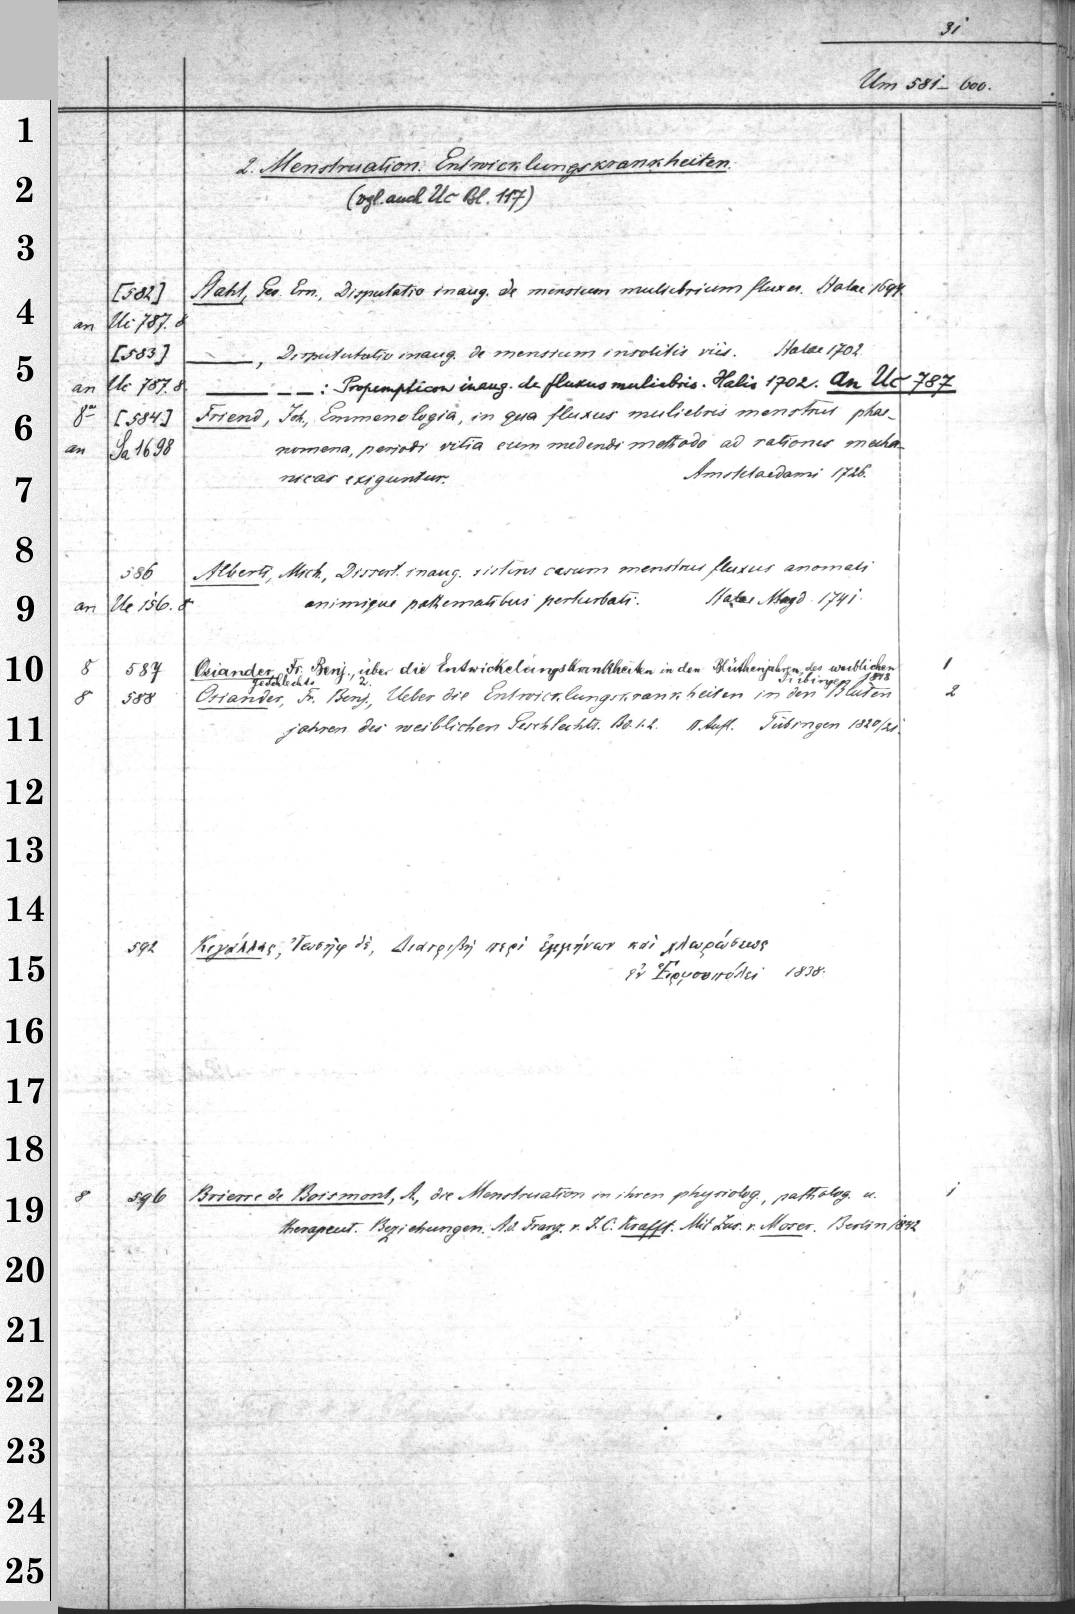 31
Um 581–600.
1
2. Menstruation. Entwicklungskrankheiten.
2
(vgl. auch Uc Bl. 117)
3
[582] Stahl, Geo. Ern., Disputatio inaug. de mensium muliebrium fluxu. Halae 1694.
4
an Uc 787. 8
[583] ———, Disputatio inaug. de mensium insolitis viis. Halae 1702
5
an Uc 787. 8. ——— – – : Propempticon inaug. de fluxus muliebris. Halis 1702. an Uc 787
8° [584] Friend, Joh., Emmenologia, in qua fluxus muliebris menstrui phae-
6
an Sa 1698 nomena, periodi vitia cum medendi methodo ad rationes mecha-
nicas exiguntur. Amstelaedami 1726.
7
8
586 Alberti, Mich., Dissert. inaug. sistens casum menstrui fluxus anomali
9
an Ue 156. 8 animique pathematibus perturbati. Halae Magd. 1741.
10
8 587 Osiander, Fr. Benj., über die Entwickelungskrankheiten in den Blüthenjahren des weiblichen 1
Geschlechts. 2. Tübingen 1818
8 588 Osiander, Fr. Benj., Ueber die Entwicklungskrankheiten in den Blüten 2
11
jahren des weiblichen Geschlechts. Bd. 1.2. II Aufl. Tübingen 1820/21.
12
13
14
592 Κιγάλλας, Ἰωσὴφ δὲ, Διατριβὴ περὶ ἐμμήνων καὶ χλωρώσεως
15
ἐν Ἑρμουπόλει 1838.
16
17
18
8 596 Brierre de Boismont, A., die Menstruation in ihren physiolog., patholog. u. 1
19
therapeut. Beziehungen. A.d. Franz. v. J.C. Krafft. Mit Zus. v. Moser. Berlin 1842
20
21
22
23
24
25